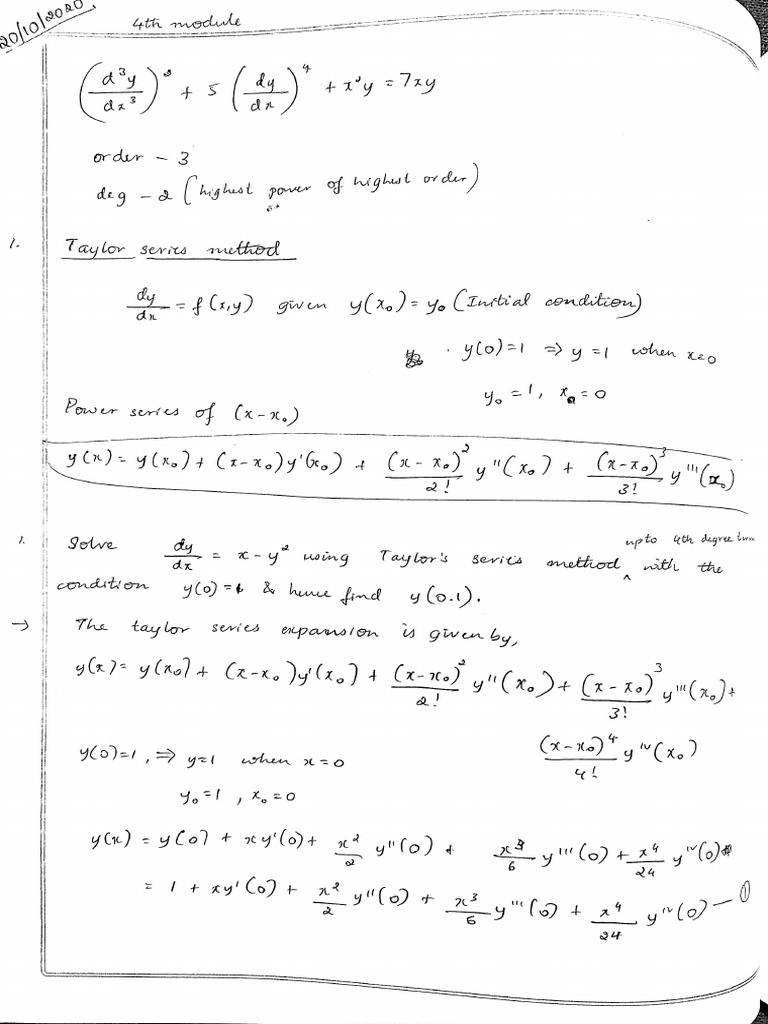 20/10/2020
4th module
(d³y/dx³)² + 5 (dy/dx)⁴ + x²y = 7xy
order - 3
deg - 2 (highest power of highest order)
1. Taylor series method
dy/dx = f(x,y) given y(x₀) = y₀ (Initial condition)
y(0)=1 ⇒ y=1 when x=0
y₀ = 1, x₀ = 0
Power series of (x-x₀)
y(x) = y(x₀) + (x-x₀)y'(x₀) + (x-x₀)²/2! y''(x₀) + (x-x₀)³/3! y'''(x₀)
upto 4th degree term
1. Solve dy/dx = x-y² using Taylor's series method ^ with the
condition y(0)=1 & hence find y(0.1).
→ The taylor series expansion is given by,
y(x) = y(x₀) + (x-x₀)y'(x₀) + (x-x₀)²/2! y''(x₀) + (x-x₀)³/3! y'''(x₀) +
(x-x₀)⁴/4! yⁱᵛ(x₀)
y(0)=1, ⇒ y=1 when x=0
y₀=1, x₀=0
y(x) = y(0) + xy'(0) + x²/2 y''(0) + x³/6 y'''(0) + x⁴/24 yⁱᵛ(0)
= 1 + xy'(0) + x²/2 y''(0) + x³/6 y'''(0) + x⁴/24 yⁱᵛ(0) — ①